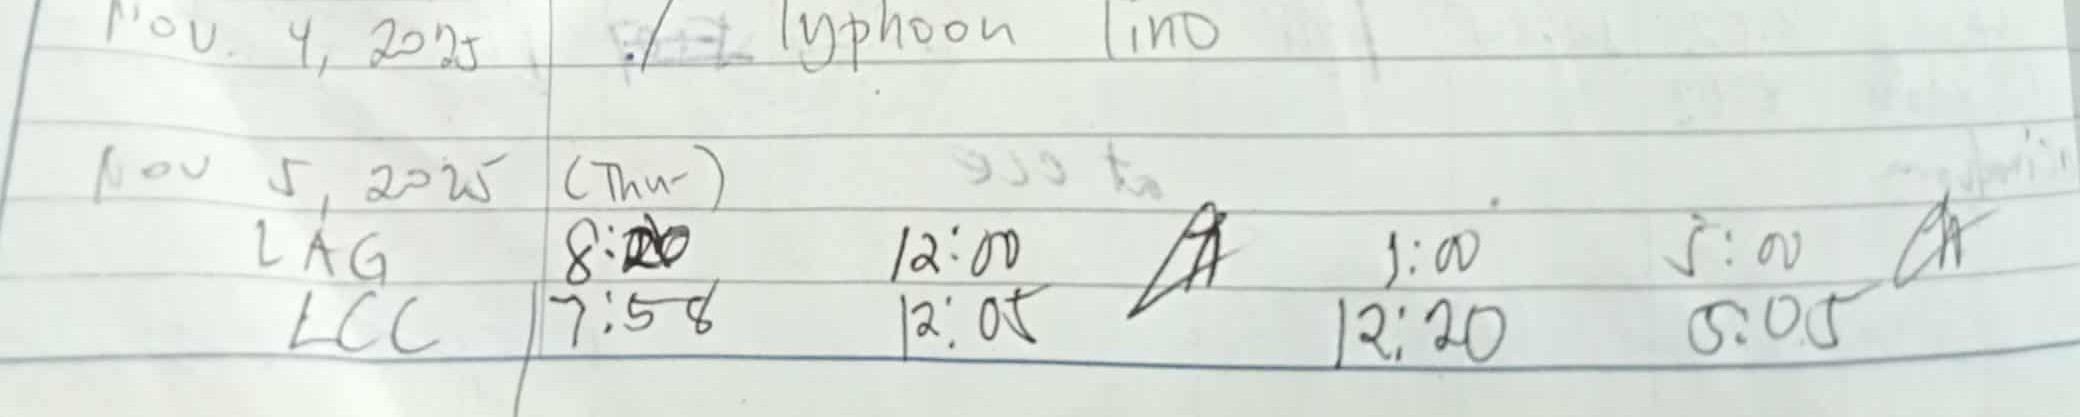 Nov. 4, 2025 / Typhoon Tino
Nov 5, 2025 (Thu)
LAG 8:20 12:00 1:00 5:00
LCC 7:58 12:05 12:20 5:05